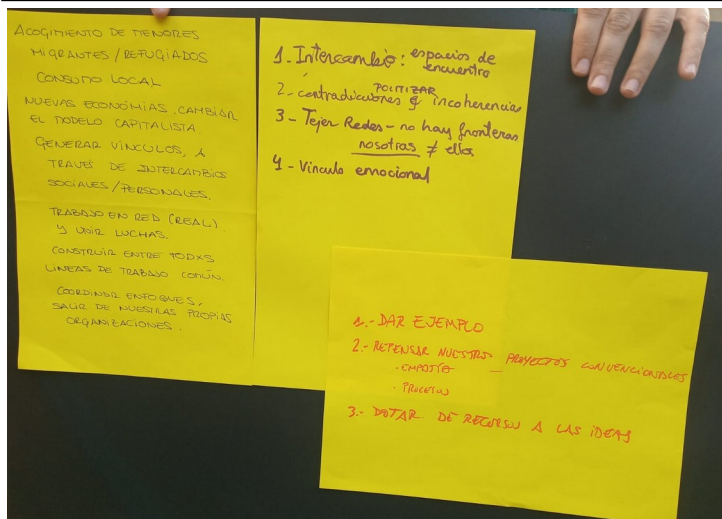 ACOGIMIENTO DE MENORES
MIGRANTES/REFUGIADOS
CONSUMO LOCAL
NUEVAS ECONOMÍAS. CAMBIAR
EL MODELO CAPITALISTA.
GENERAR VÍNCULOS, A
TRAVÉS DE INTERCAMBIOS
SOCIALES/PERSONALES.
TRABAJO EN RED (REAL)
Y UNIR LUCHAS.
CONSTRUIR ENTRE TODXS
LINEAS DE TRABAJO COMÚN.
COORDINAR ENFOQUES,
SALIR DE NUESTRAS PROPIAS
ORGANIZACIONES.
1. Intercambio: espacios de
encuentro
POLITIZAR
2- contradicciones e incoherencias
3- Tejer Redes - no hay fronteras
nosotras ≠ ellos
4- Vínculo emocional
1.- DAR EJEMPLO
2.- REPENSAR NUESTROS PROYECTOS CONVENCIONALES
· EMPATÍA
· PROCESOS
3.- DOTAR DE RECURSOS A LAS IDEAS